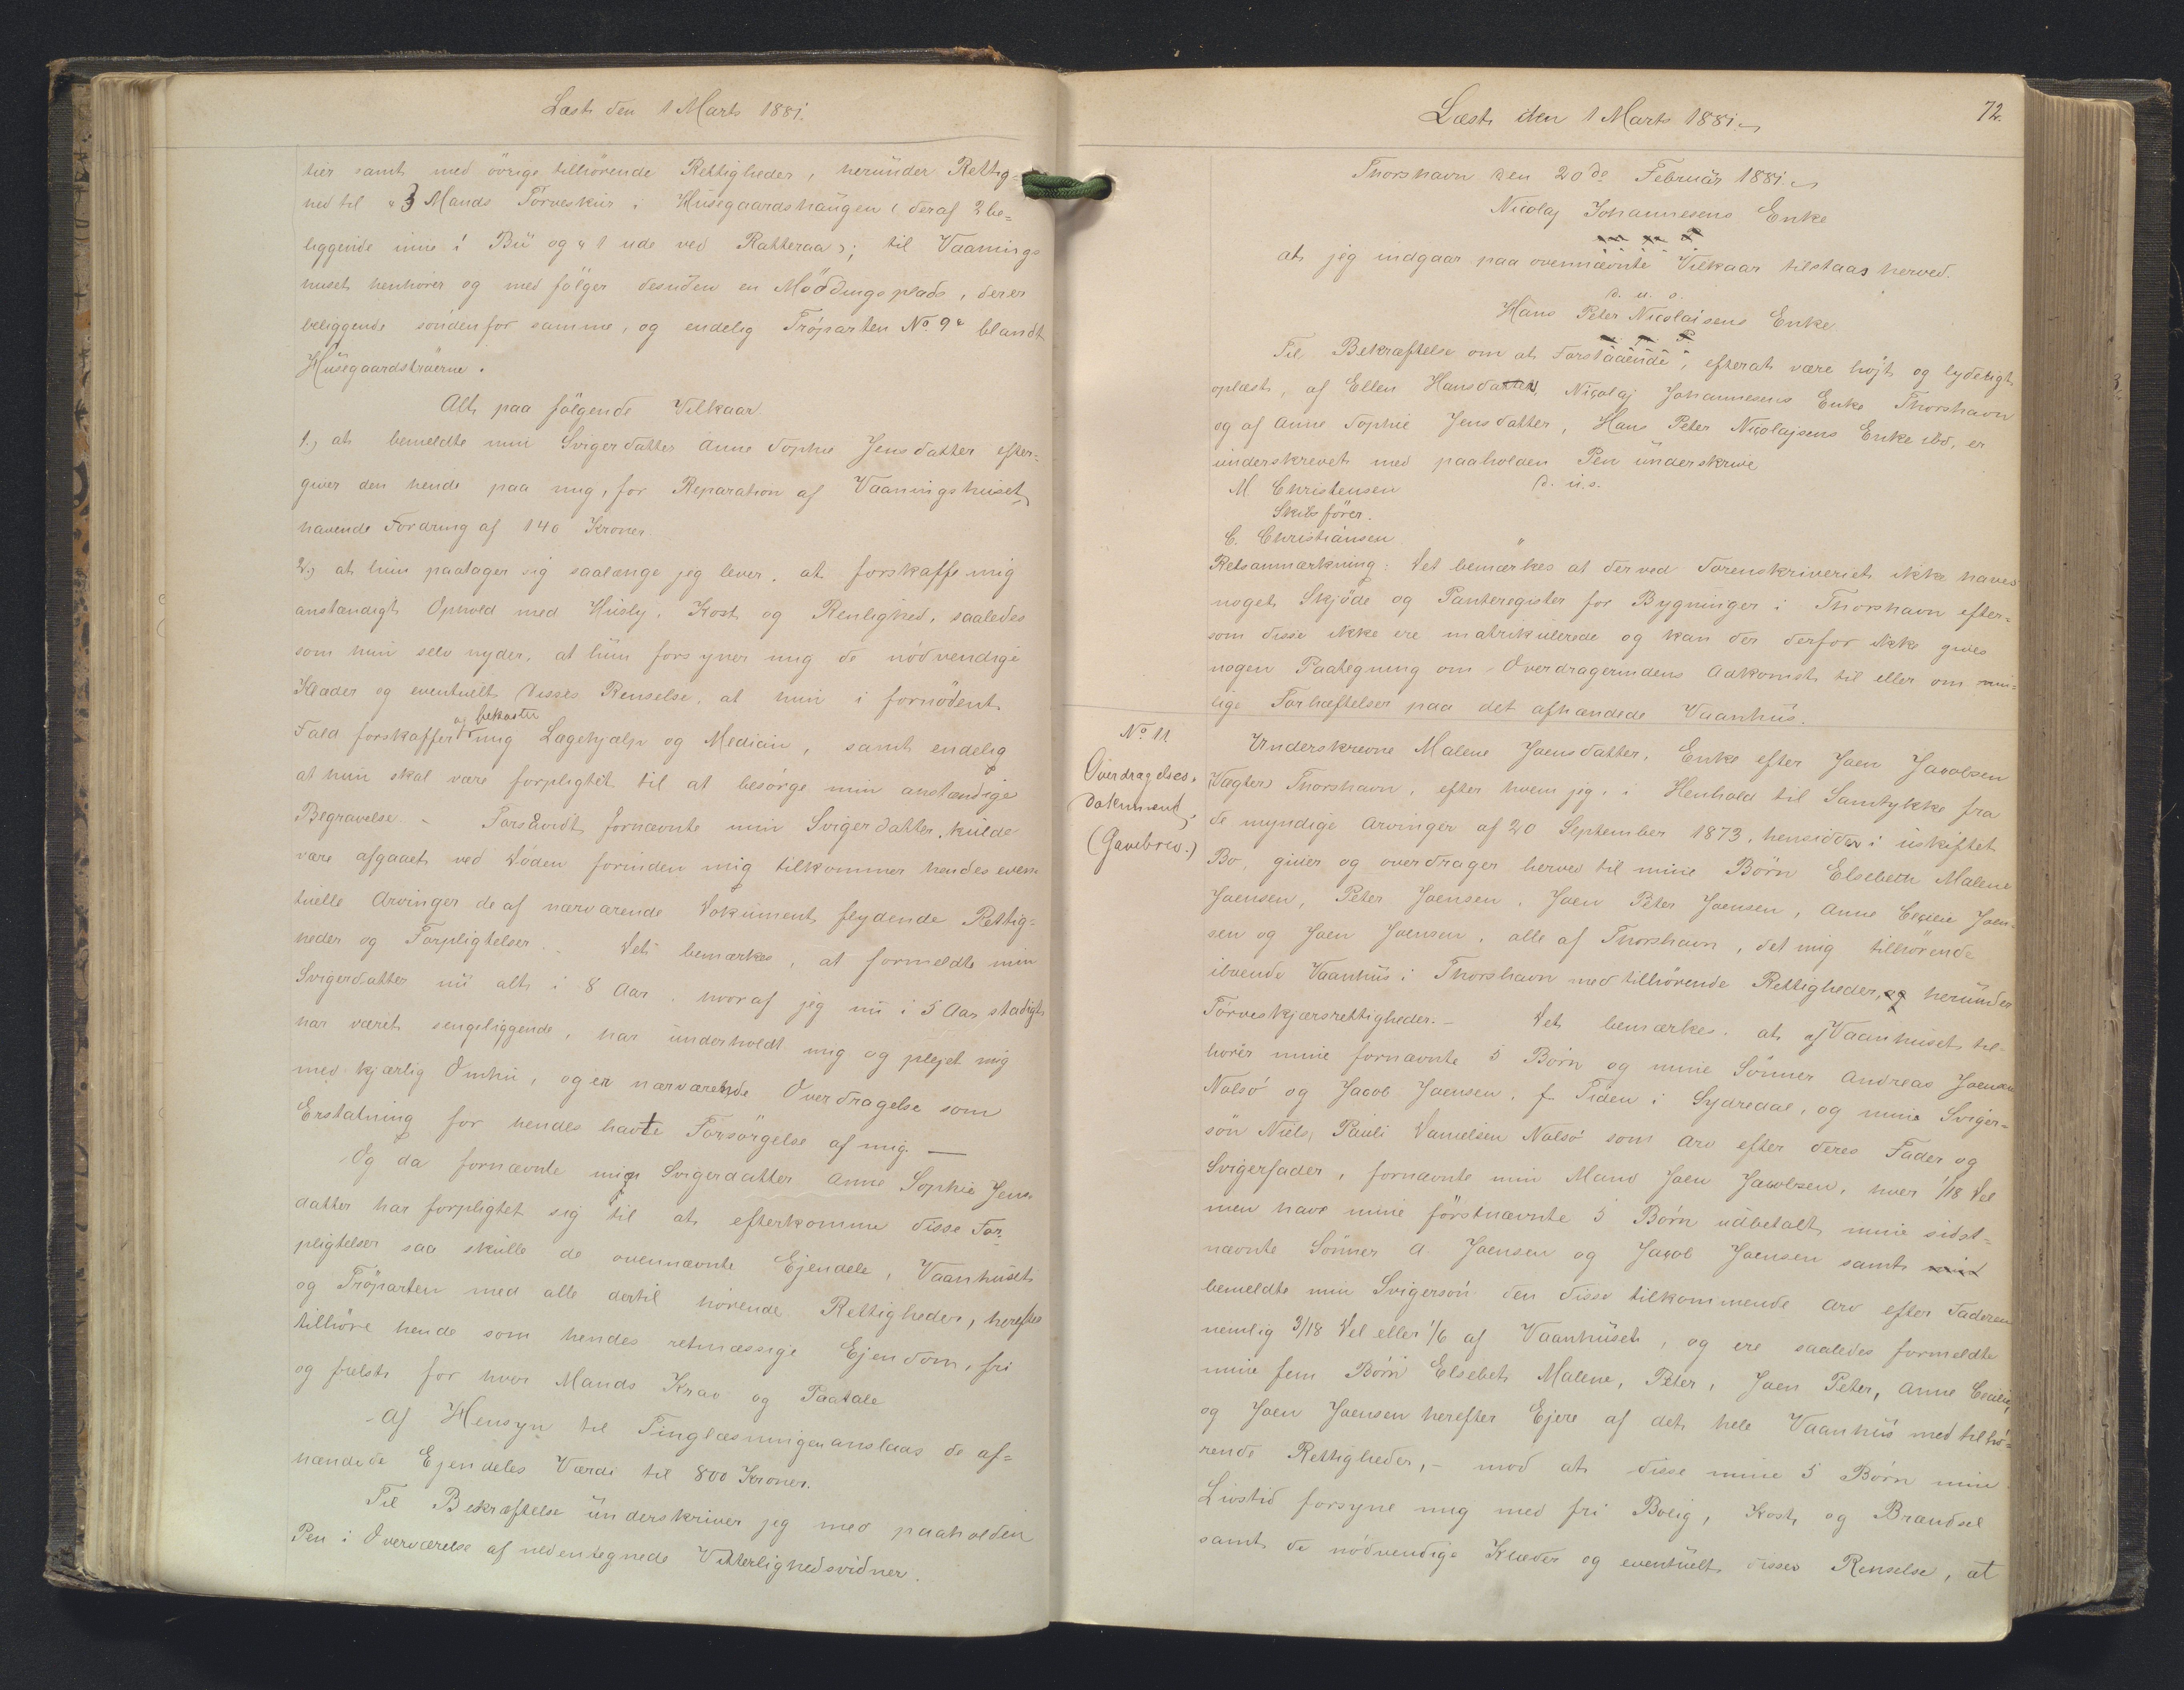 Læst den 1 Marts 1881.
tier samt med övrige tilhörende Rettigheder, herunder Rettig=
hed til 3 Mands Törveskur i Husegaardshaugen (deraf 2 be=
liggende inne i Bü og 1 ude ved Ratteraa); til Vaanings
huset henhører og med fölger desuden en Möddingsplads, der er
beliggende söndenfor samme, og endelig Tröparten No. 9 blandt
Husegaardströerne.
Alt paa fölgende Vilkaar.
1., at bemeldte min Svigerdatter Anne Sophie Jensdatter efter=
giver den hende paa mig, for Reparation af Vaaningshuset
havende Fordring af 140 Kroner.
2., at hun paatager sig saalænge jeg lever, at forskaffe mig
anstændigt Ophold med Husly, Kost og Renlighed, saaledes
som hun selv nyder, at hun forsyner mig de nödvendige
Klæder og eventuelt disses Renselse, at hun i fornödent
Fald forskaffer og bekoster mig Lægehjælp og Medicin, samt endelig
at hun skal være forpligtet til at besörge min anstændige
Begravelse. - Forsåvidt fornævnte min Svigerdatter skulde
være afgaaet ved Döden forinden mig tilkommer hendes even
tuelle Arvinger de af nærværende Dokument flydende Rettig=
heder og Forpligtelser. - Det bemærkes, at formeldte min
Svigerdatter nu alt i 8 Aar, hvoraf jeg nu i 5 Aar stadigt
har været sengeliggende, har underholdt mig og plejet mig
med kjærlig Omhu, og er nærværende Overdragelse som
Erstatning for hendes havte Forsörgelse af mig. —
Og da fornævnte min Svigerdatter Anne Sophie Jens
datter har forpligtet sig til at efterkomme disse For
pligtelser saa skulle de ovennævnte Ejendele, Vaanhuset
og Tröparten med alle dertil hörende Rettigheder, herefter
tilhöre hende som hendes retmæssige Ejendom, fri
og frelst for hver Mands Krav og Paatale
Af Hensyn til Tinglæsningen anslaas de af=
hændede Ejendeles Værdi til 800 Kroner.
Til Bekræftelse underskriver jeg med paaholden
Pen i Overværelse af nedentegnede Vitterlighedsvidner.
Læst den 1 Marts 1881.
72.
Thorshavn den 20de Februar 1881.
Nicolaj Johannesens Enke
at jeg indgaar paa ovennævnte Vilkaar tilstaas herved.
d. u. s.
Hans Peter Nicolaisens Enke
Til Bekræftelse om at Forstaaende, efterat være höjt og lydeligt
oplæst, af Ellen Hansdatter, Nicolaj Johannesens Enke Thorshavn
og af Anne Sophie Jensdatter, Hans Peter Nicolajsens Enke ibd, er
underskrevet med paaholden Pen underskrive
M. Christensen d. u. s.
Skibsförer.
C. Christiansen "
Retsanmærkning: Det bemærkes at der ved Sorenskriveriet ikke haves
noget Skjöde og Panteregister for Bygninger i Thorshavn efter=
som disse ikke ere matrikulerede og kan der derfor ikke gives
nogen Paategning om Overdragerindens Adkomst til eller om mu=
lige Forhæftelser paa det afhændede Vaanhus.
No 11
Overdragelses-
dokument,
(Gavebrev.)
Underskrevne Malene Joensdatter, Enke efter Joen Jacobsen
Vagter Thorshavn, efter hvem jeg, i Henhold til Samtykke fra
de myndige Arvinger af 20 September 1873, hensidder i uskiftet
Bo, giver og overdrager herved til mine Börn Elsebeth Malene
Joensen, Peter Joensen, Joen Peter Joensen, Anne Cecilie Joen-
sen og Joen Joensen, alle af Thorshavn, det mig tilhörende
iboende Vaanhus i Thorshavn med tilhörende Rettigheder, herunder
Törveskjærsrettigheder. - Det bemærkes, at af Vaanhuset til-
hörer mine fornævnte 5 Börn og mine Sönner Andreas Joensen
Nolsö og Jacob Joensen, f. Tiden i Sydredal, og mine Sviger=
sön Niels Pauli Danielsen Nolsö som Arv efter deres Fader og
Svigerfader, fornævnte min Mand Joen Jacobsen, hver 1/18 Del
men have mine förstnævnte 5 Börn udbetalt mine sidst=
nævnte Sönner A. Joensen og Jacob Joensen samt
bemeldte min Svigersön den disse tilkommende Arv efter Faderen
nemlig 3/18 Del eller 1/6 af Vaanhuset, og ere saaledes formeldte
mine fem Börn Elsebet Malene, Peter, Joen Peter, Anne Cecilie,
og Joen Joensen herefter Ejere af det hele Vaanhus med tilhö=
rende Rettigheder, - mod at disse mine 5 Börn min
Livstid forsyne mig med fri Bolig, Kost og Brændsel
samt de nödvendige Klæder og eventuelt disses Renselse, at